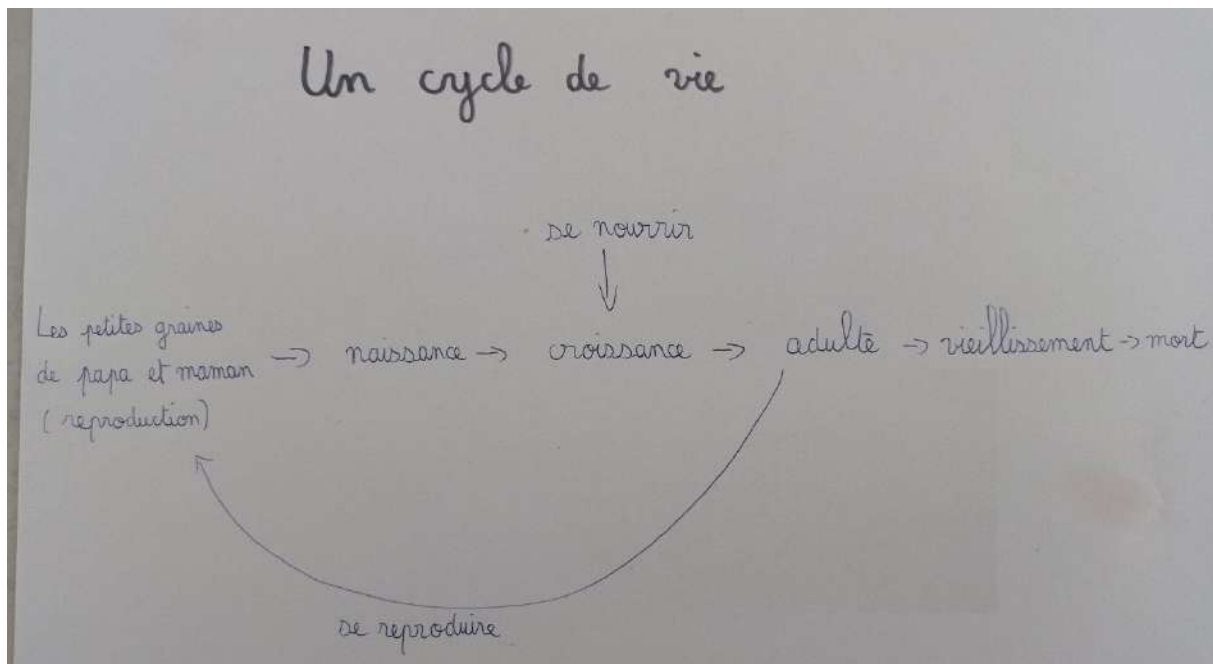 Un cycle de vie
se nourrir
Les petites graines
de papa et maman
(reproduction)
→ naissance → croissance → adulte → vieillissement → mort
se reproduire